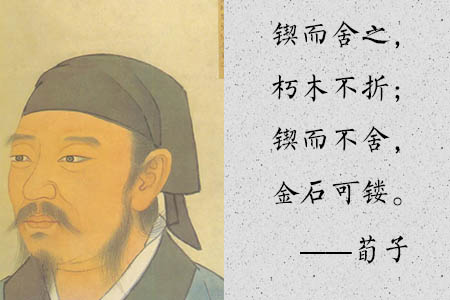 锲而舍之，
朽木不折；
锲而不舍，
金石可镂。
——荀子